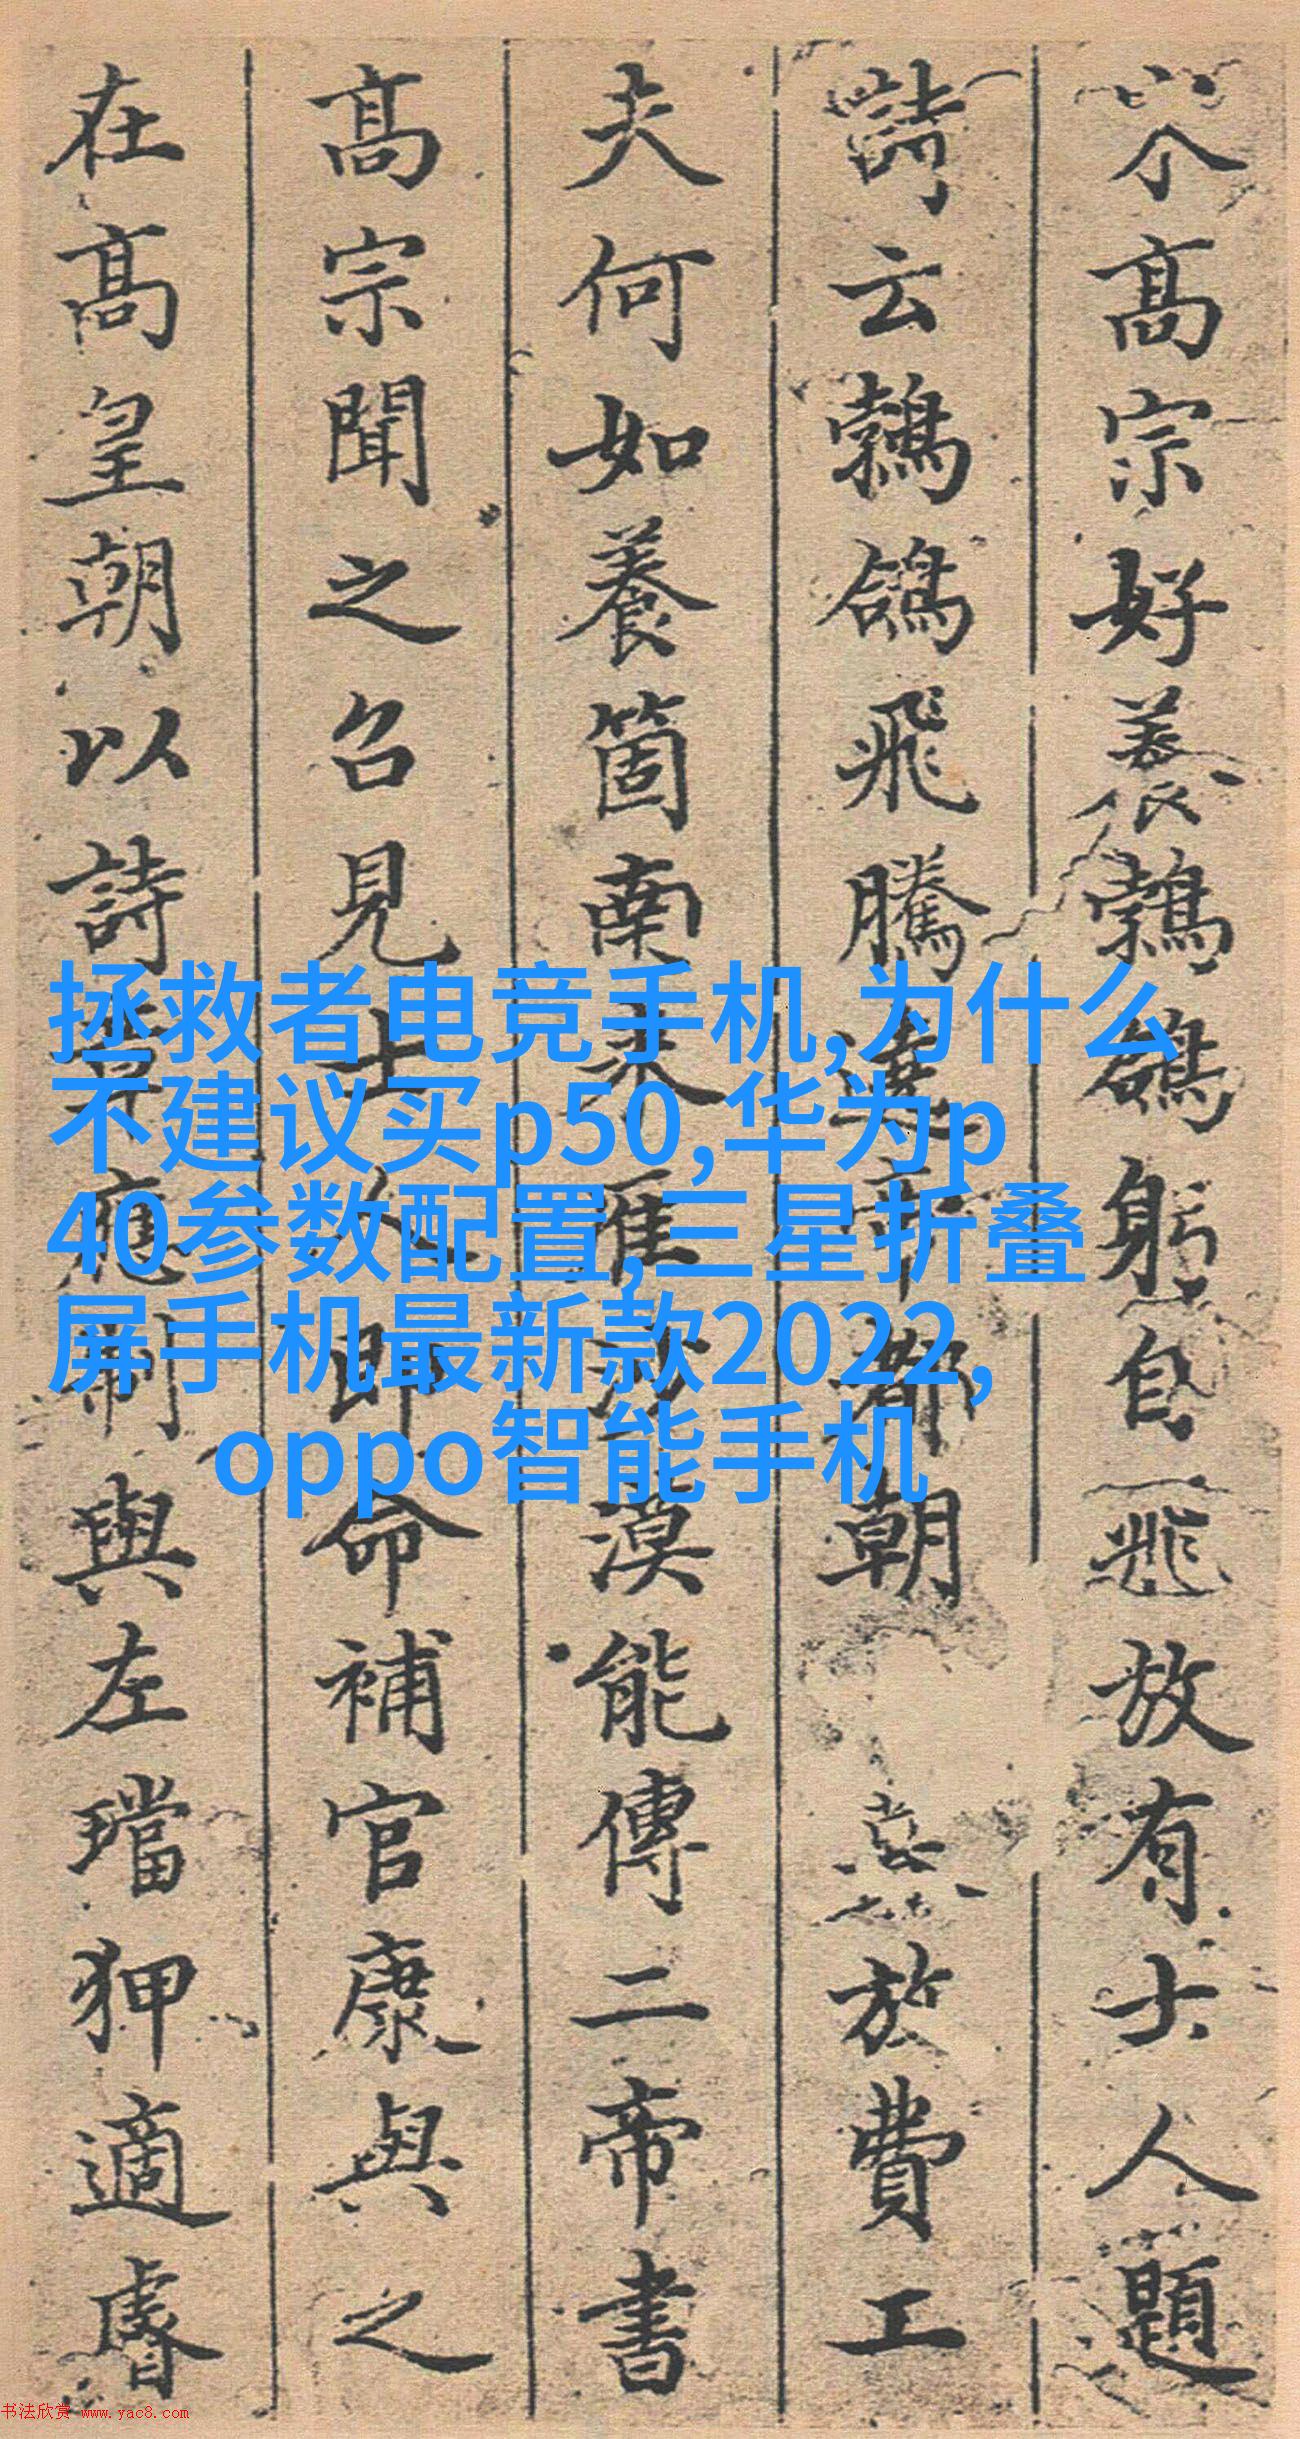 高宗好養鵓鴿躬自飛放有士人題
詩云鵓鴿飛騰遶帝都朝放費工
夫何如養箇南來雁沙漠能傳二帝書
高宗聞之召見士人即命補官康與之
在高皇朝以詩章應制與左璫狎適睿
拯救者电竞手机,为什么
不建议买p50,华为p
40参数配置,三星折叠
屏手机最新款2022,
oppo智能手机
书法欣赏 www.yac8.com